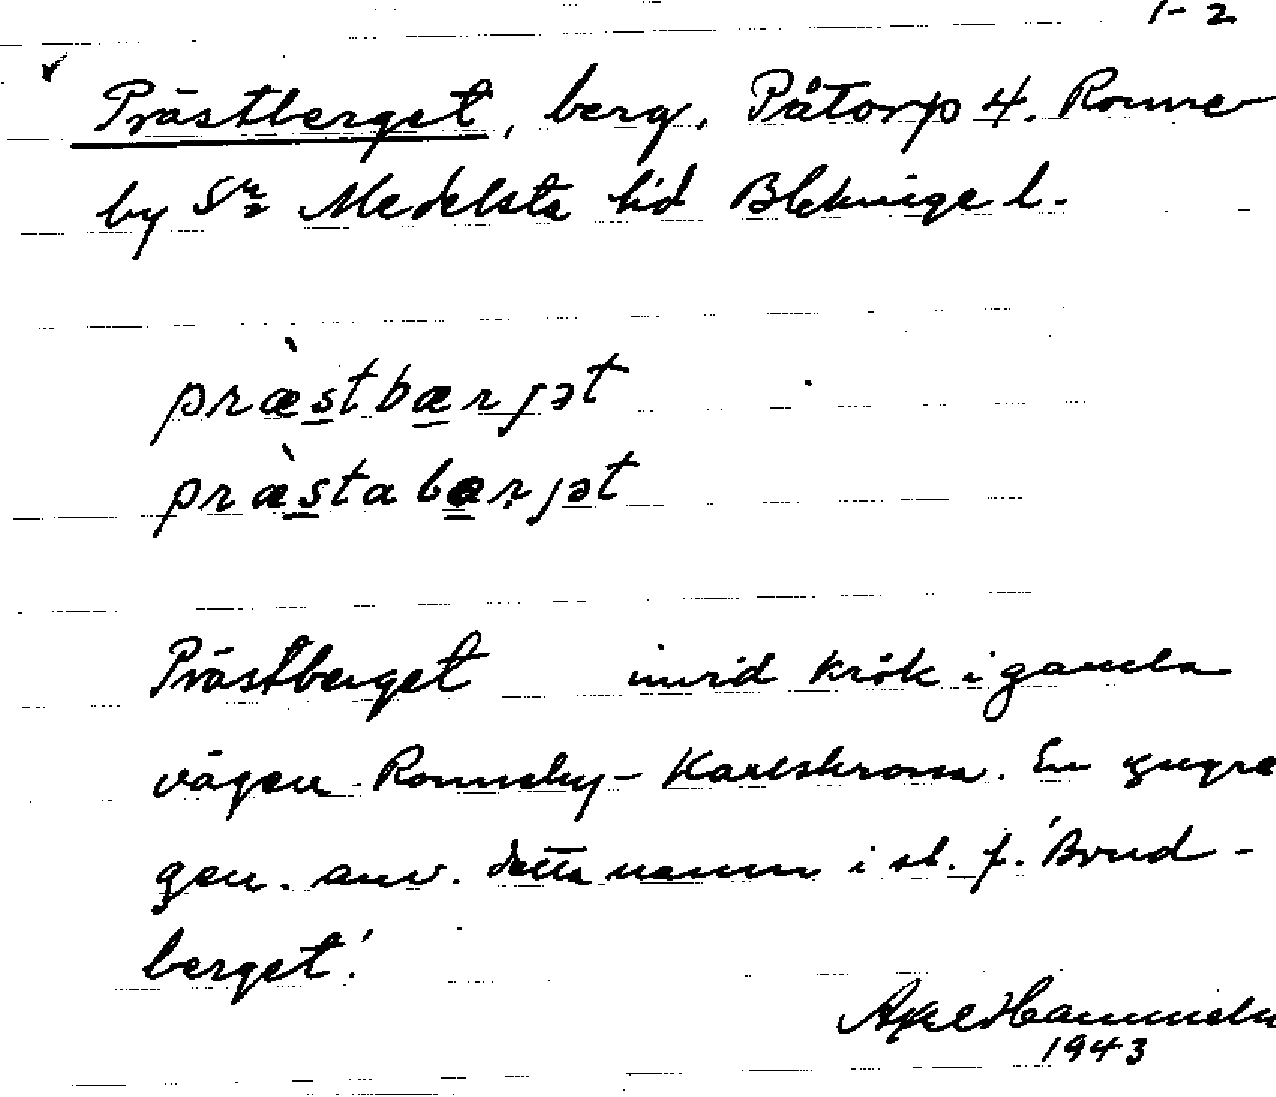 1-2
Prästberget, berg, Påtorp 4. Ronne-
by sn Medelsta hd Blekinge l.
præ̀stbærjət
præ̀stabærjət
Prästberget invid krök i gamla
vägen Ronneby - Karlskrona. En yngre
gen. anv. detta namn i st. f. 'Brud-
berget'.
Axel
1943